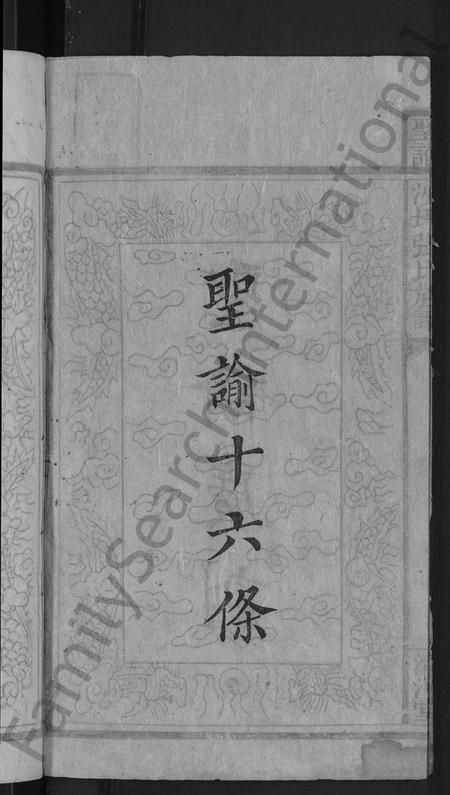 聖諭十六條
FamilySearch International